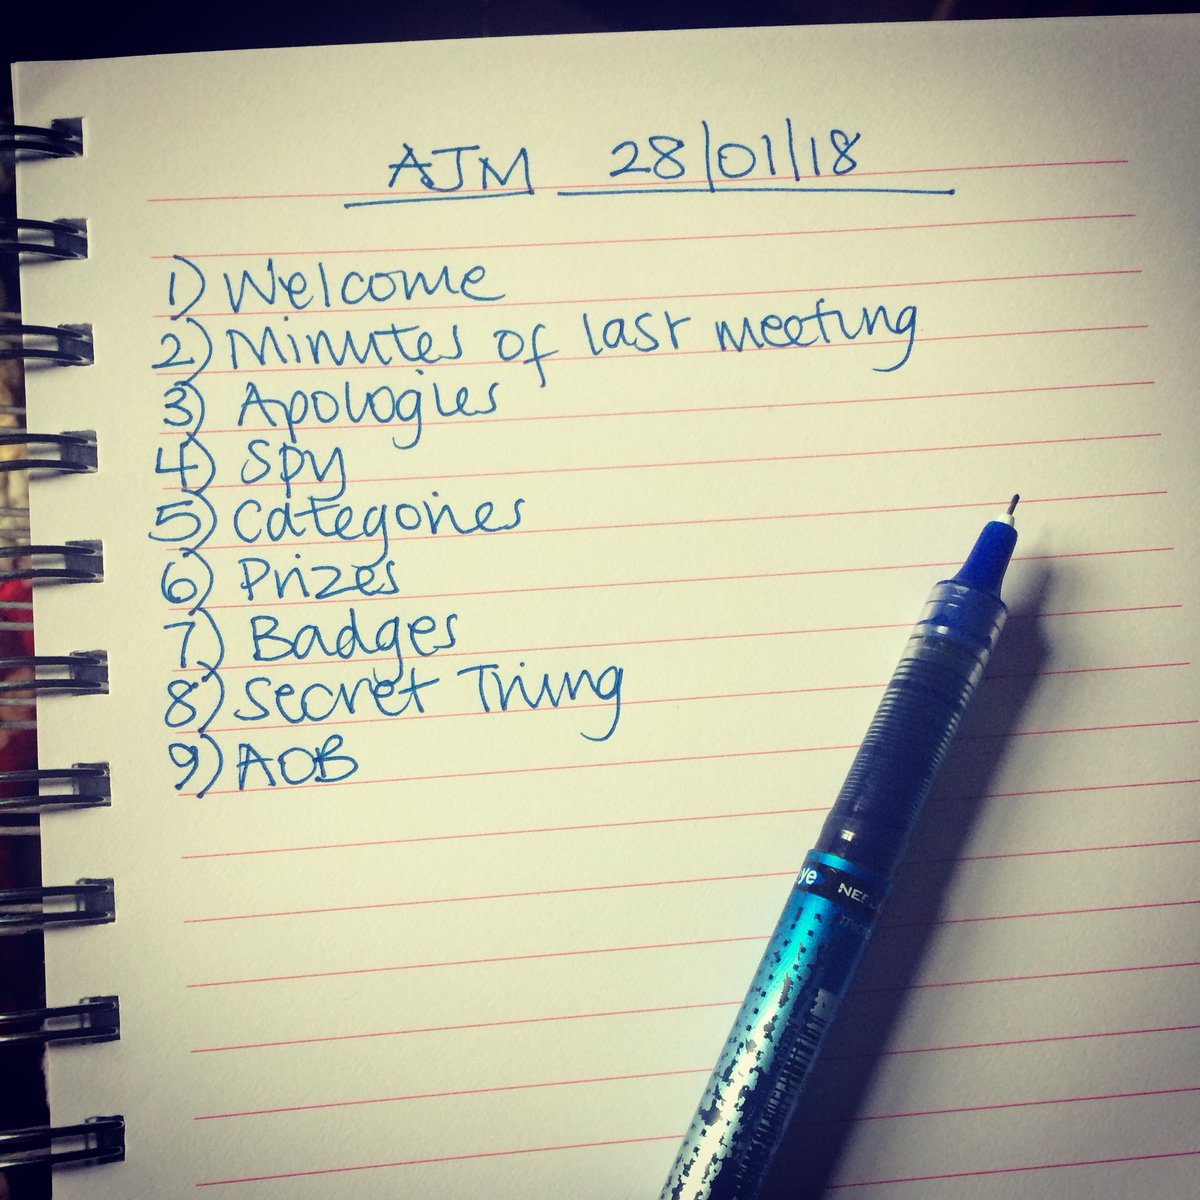 AJM 28/01/18
1) Welcome
2) Minutes of last meeting
3) Apologies
4) Spy
5) Categories
6) Prizes
7) Badges
8) Secret Thing
9) AOB
ye